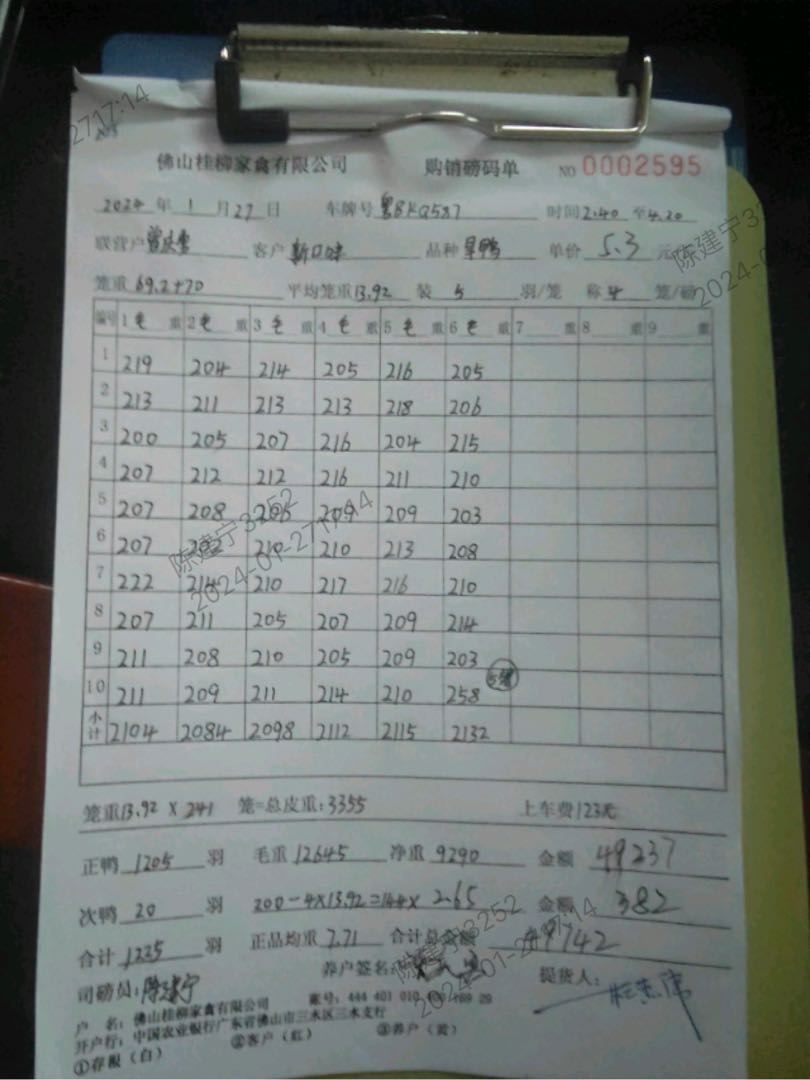 佛山桂柳家禽有限公司 购销磅码单 NO 0002595
2024年1月27日 车牌号 粤BKQ587 时间2:40至4:20
联营户 客户 新口味 品种 旱鸭 单价 5.3 元
笼重 69.2+70 平均笼重13.92 装 5 羽/笼 称 4 笼/磅
编号 1毛重 2毛重 3毛重 4毛重 5毛重 6毛重 7 重 8 重 9 重
1 219 204 214 205 216 205
2 213 211 213 213 218 206
3 200 205 207 216 204 215
4 207 212 212 216 211 210
5 207 208 206 209 209 203
6 207 202 210 210 213 208
7 222 214 210 217 216 210
8 207 211 205 207 209 214
9 211 208 210 205 209 203
10 211 209 211 214 210 258 5笼
小计 2104 2084 2098 2112 2115 2132
笼重13.92 X 241 笼=总皮重:3355 上车费123元
正鸭 1205 羽 毛重 12645 净重 9290 金额 49237
次鸭 20 羽 200-4X13.92=144X 2.65 金额 382
合计 1225 羽 正品均重 7.71 合计总金额 49742
养户签名: 提货人:
司磅员:陈建宁
户 名:佛山桂柳家禽有限公司 账号:444 401 010 400 169 20
开户行:中国农业银行广东省佛山市三水区三水支行
①存根(白) ②客户(红) ③养户(黄)
陈建宁3252
2024-01-27 17:14